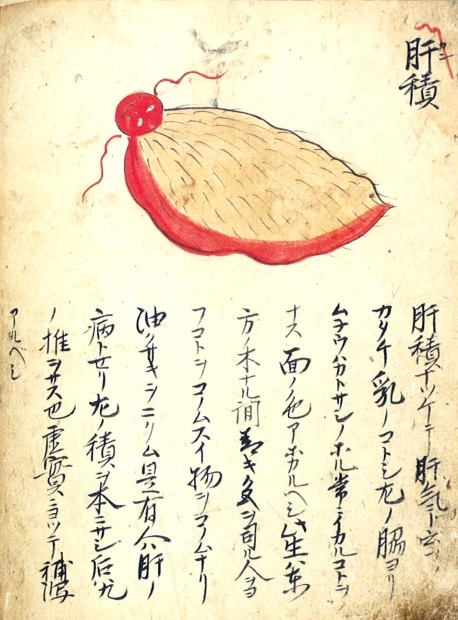 肝積
肝積ナツケテ肝気ト云ソノ
カタチ乳ノコトシ左ノ脇ヨリ
ムナウハカトサシノホル常ニイカルコトヲ
ナス面ノ色アホカルヘシ此生東
方ノ木ナル間キヲ司ル人
フコトヲコノムスイ物ヲコノムナリ
油ノサキヲニクム是有人ハ肝ノ
病トセリ左ノ積ヲ本ニサシ右ハ九
ノ推ヲサス也虚実ニヨツテ補瀉
アルベシ